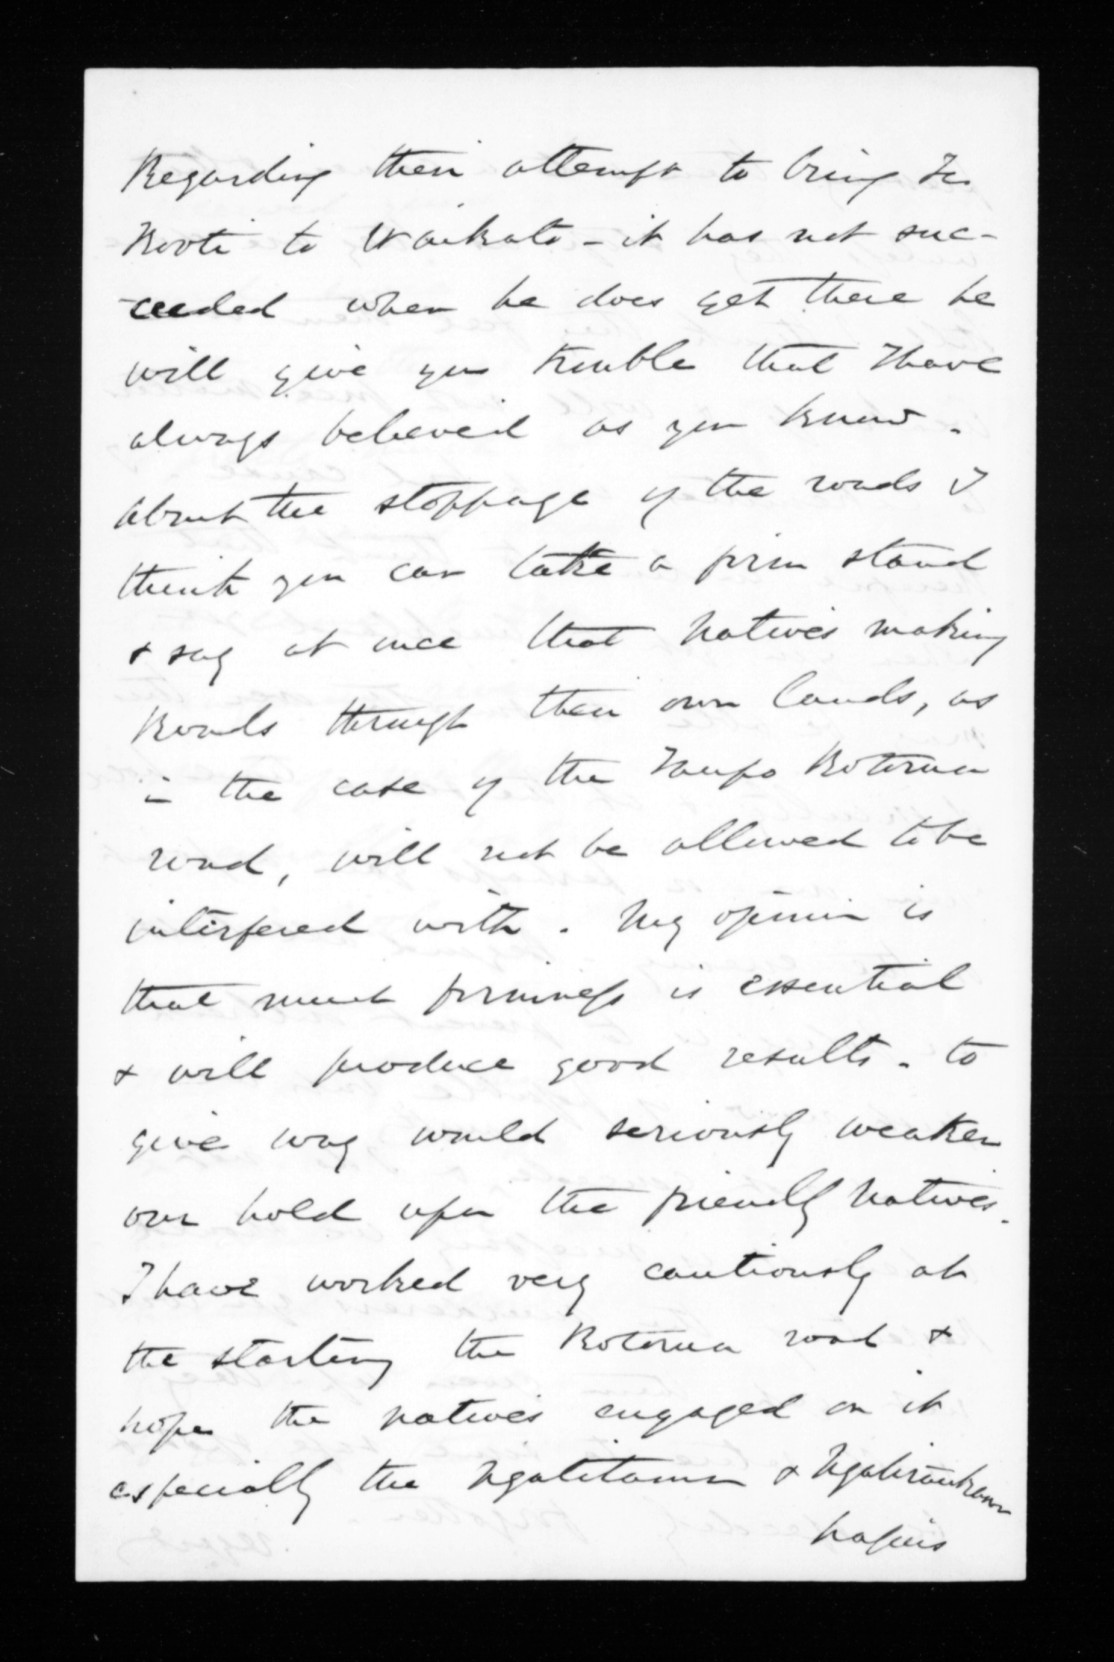 Regarding their attempt to bring Te
Kooti to Waikato - it has not suc-
-ceeded when he does get there he
will give you trouble that I have
always believed as you know.
about the stoppage of the roads I
think you can take a firm stand
& say at once that natives making
Roads through their own lands, as
in the case of the Taupo Rotorua
road, will not be allowed to be
interfered with. My opinion is
that much firmness is essential
& will produce good results. to
give way would seriously weaken
our hold upon the friendly natives.
I have worked very cautiously at
the starting the Rotorua road &
hope the natives engaged on it
especially the Ngatitama &